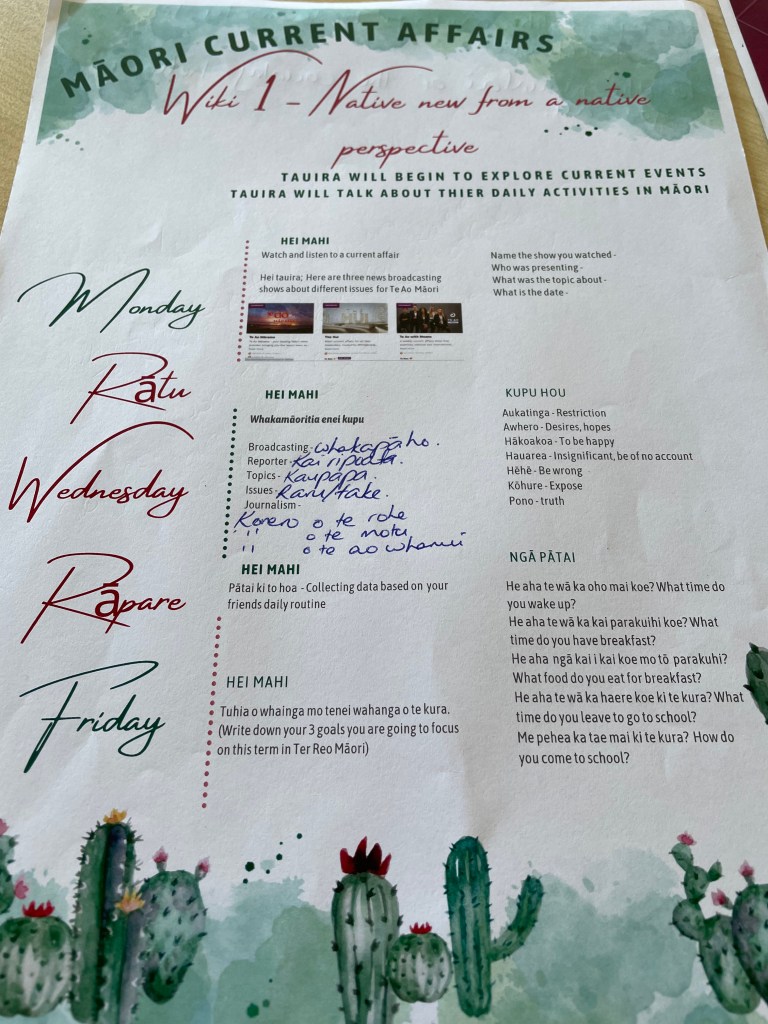 MĀORI CURRENT AFFAIRS
Wiki 1 - Native new from a native
perspective
TAUIRA WILL BEGIN TO EXPLORE CURRENT EVENTS
TAUIRA WILL TALK ABOUT THIER DAILY ACTIVITIES IN MĀORI
Monday
HEI MAHI
Watch and listen to a current affair
Hei tauira; Here are three news broadcasting
shows about different issues for Te Ao Māori
Name the show you watched -
Who was presenting -
What was the topic about -
What is the date -
Rātu
Wednesday
HEI MAHI
Whakamāoritia enei kupu
Broadcasting - whakapāho.
Reporter - Kai ripoata.
Topics - Kaupapa.
Issues - Raru/take.
Journalism -
Korero o te rohe
" o te motu
" o te ao whanui
KUPU HOU
Aukatinga - Restriction
Awhero - Desires, hopes
Hākoakoa - To be happy
Hauarea - Insignificant, be of no account
Hēhē - Be wrong
Kōhure - Expose
Pono - truth
Rāpare
HEI MAHI
Pātai ki to hoa - Collecting data based on your
friends daily routine
Friday
HEI MAHI
Tuhia o whainga mo tenei wahanga o te kura.
(Write down your 3 goals you are going to focus
on this term in Ter Reo Māori)
NGĀ PĀTAI
He aha te wā ka oho mai koe? What time do
you wake up?
He aha te wā ka kai parakuihi koe? What
time do you have breakfast?
He aha ngā kai i kai koe mo tō parakuhi?
What food do you eat for breakfast?
He aha te wā ka haere koe ki te kura? What
time do you leave to go to school?
Me pehea ka tae mai ki te kura? How do
you come to school?